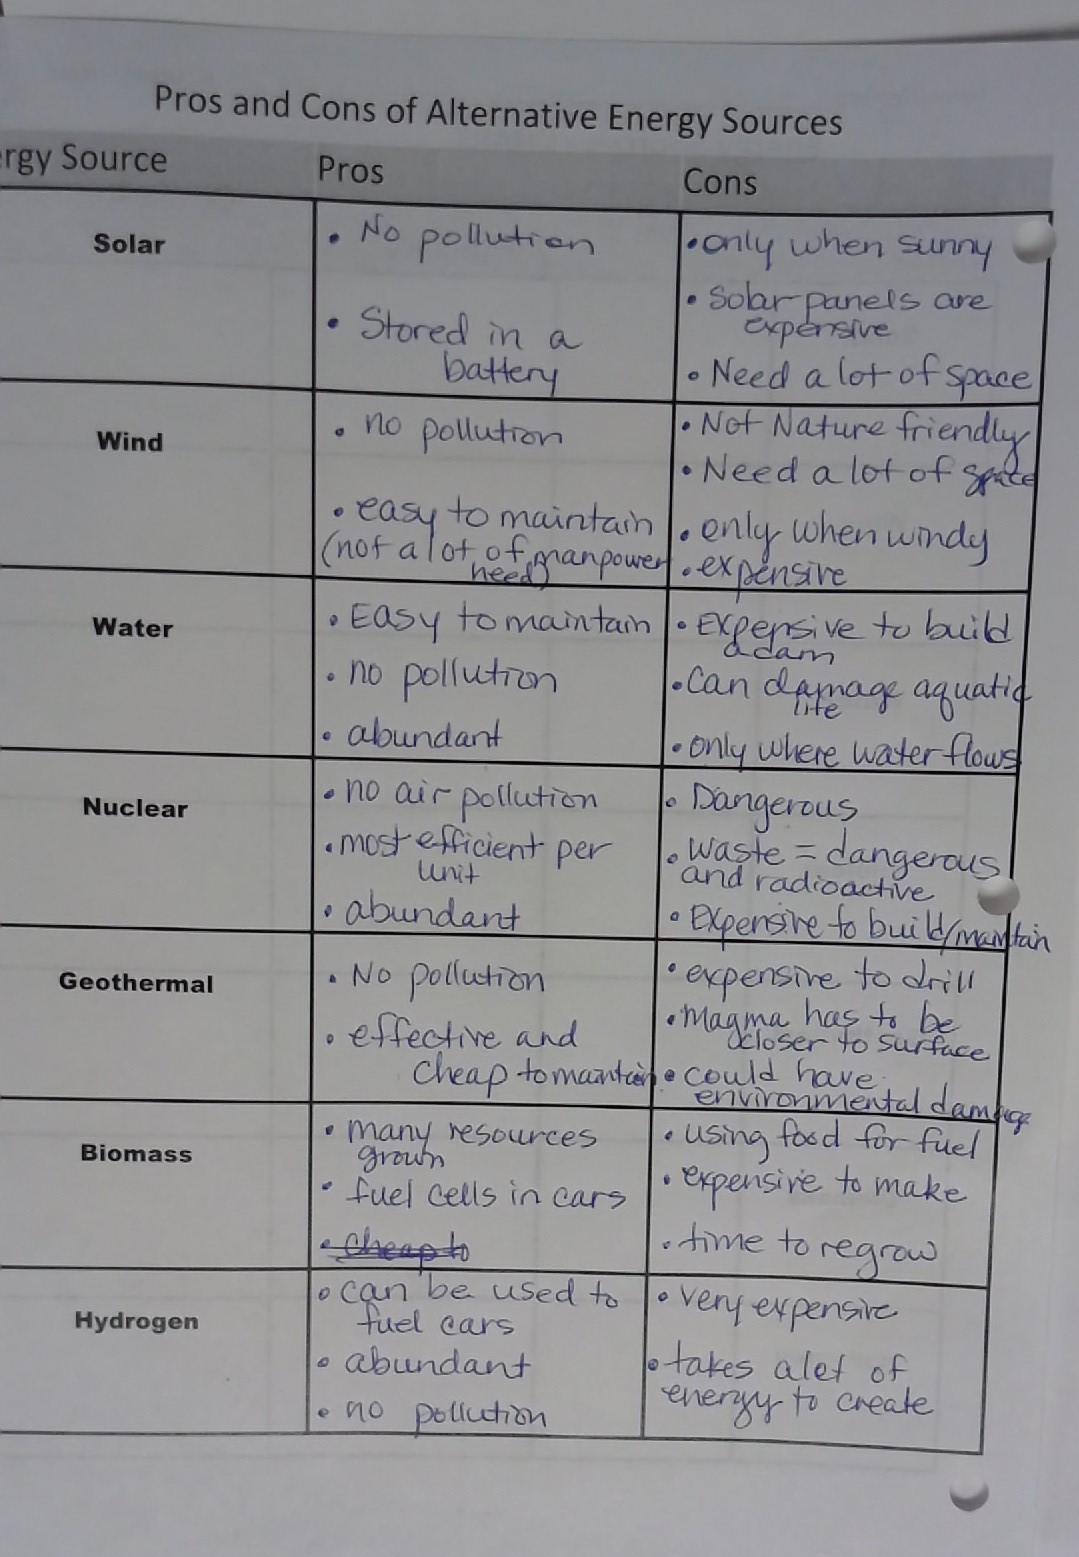 Pros and Cons of Alternative Energy Sources
rgy Source Pros Cons
Solar
• No pollution
• Stored in a
battery
• only when sunny
• Solar panels are
expensive
• Need a lot of space
Wind
• no pollution
• easy to maintain
(not a lot of manpower
need)
• Not Nature friendly
• Need a lot of space
• only when windy
• expensive
Water
• Easy to maintain
• no pollution
• abundant
• Expensive to build
a dam
• Can damage aquatic
life
• only where water flows
Nuclear
• no air pollution
• most efficient per
unit
• abundant
• Dangerous
• Waste = dangerous
and radioactive
• Expensive to build/maintain
Geothermal
• No pollution
• effective and
cheap to maintain
• expensive to drill
• Magma has to be
closer to surface
• could have
environmental damage
Biomass
• many resources
grown
• fuel cells in cars
• cheap to
• using food for fuel
• expensive to make
• time to regrow
Hydrogen
• can be used to
fuel cars
• abundant
• no pollution
• very expensive
• takes alot of
energy to create